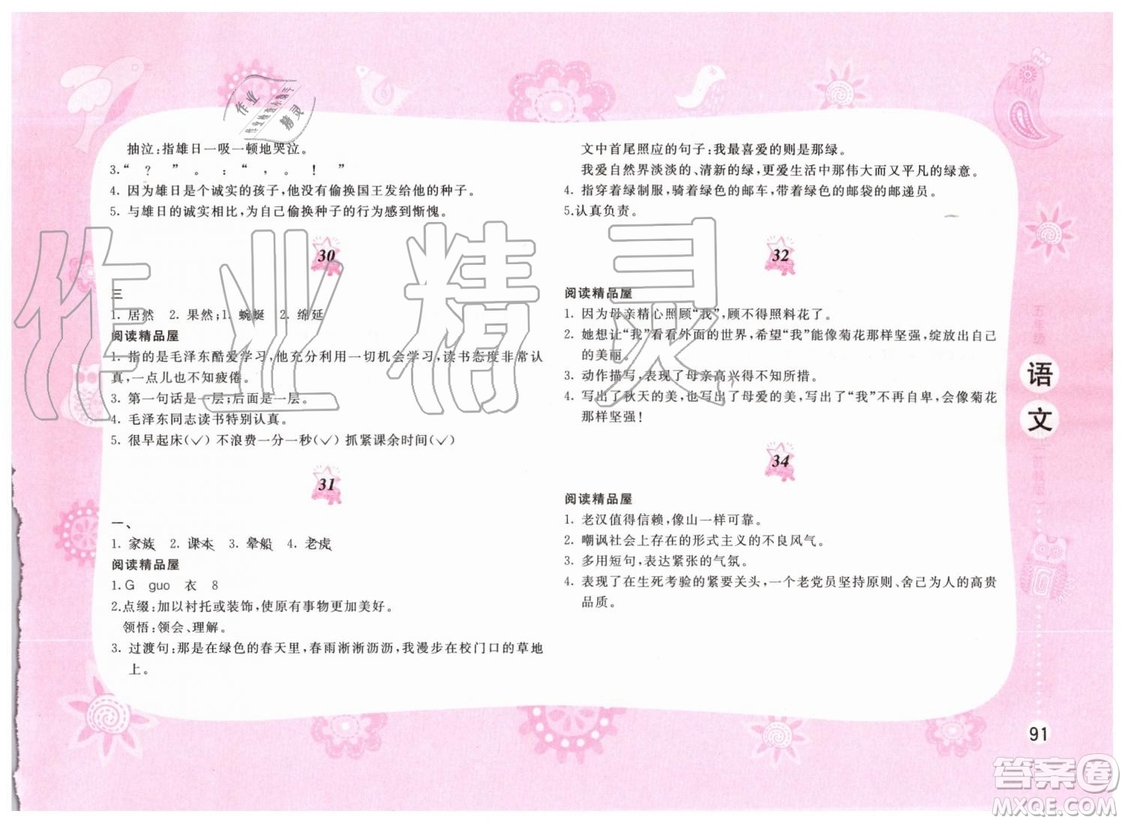 抽泣:指雄日一吸一顿地哭泣。
3.“ ? ” 。:“ , 。! ”
4. 因为雄日是个诚实的孩子,他没有偷换国王发给他的种子。
5. 与雄日的诚实相比,为自己偷换种子的行为感到惭愧。
30
三
1. 居然 2. 果然;1. 蜿蜒 2. 绵延
阅读精品屋
1. 指的是毛泽东酷爱学习,他充分利用一切机会学习,读书态度非常认
真,一点儿也不知疲倦。
3. 第一句话是一层;后面是一层。
4. 毛泽东同志读书特别认真。
5. 很早起床(✓) 不浪费一分一秒(✓) 抓紧课余时间(✓)
31
一、
1. 家族 2. 课本 3. 晕船 4. 老虎
阅读精品屋
1.G guo 衣 8
2.点缀:加以衬托或装饰,使原有事物更加美好。
领悟:领会、理解。
3. 过渡句:那是在绿色的春天里,春雨淅淅沥沥,我漫步在校门口的草地
上。
文中首尾照应的句子:我最喜爱的则是那绿。
我依然喜爱自然界淡淡的、清新的绿,更爱生活中那伟大而又平凡的绿意。
4. 指穿着绿制服,骑着绿色的邮车,带着绿色的邮袋的邮递员。
5.认真负责。
32
阅读精品屋
1. 因为母亲精心照顾“我”,顾不得照料花了。
2. 她想让“我”看看外面的世界,希望“我”能像菊花那样坚强,绽放自己
的美丽。
3. 动作描写,表现了母亲高兴得不知所措。
4. 写出了秋天的美,也写出了母爱的美,写出了“我”不再自卑,会像菊花
那样坚强!
34
阅读精品屋
1. 老汉值得信赖,像山一样可靠。
2. 嘲讽社会上存在的形式主义的不良风气。
3. 多用短句,表达紧张的气氛。
4. 表现了在生死考验的紧要关头,一个老党员坚持原则、舍己为人的高贵
品质。
五年级
语
文
91
作业精灵
答案圈
MXQE.COM